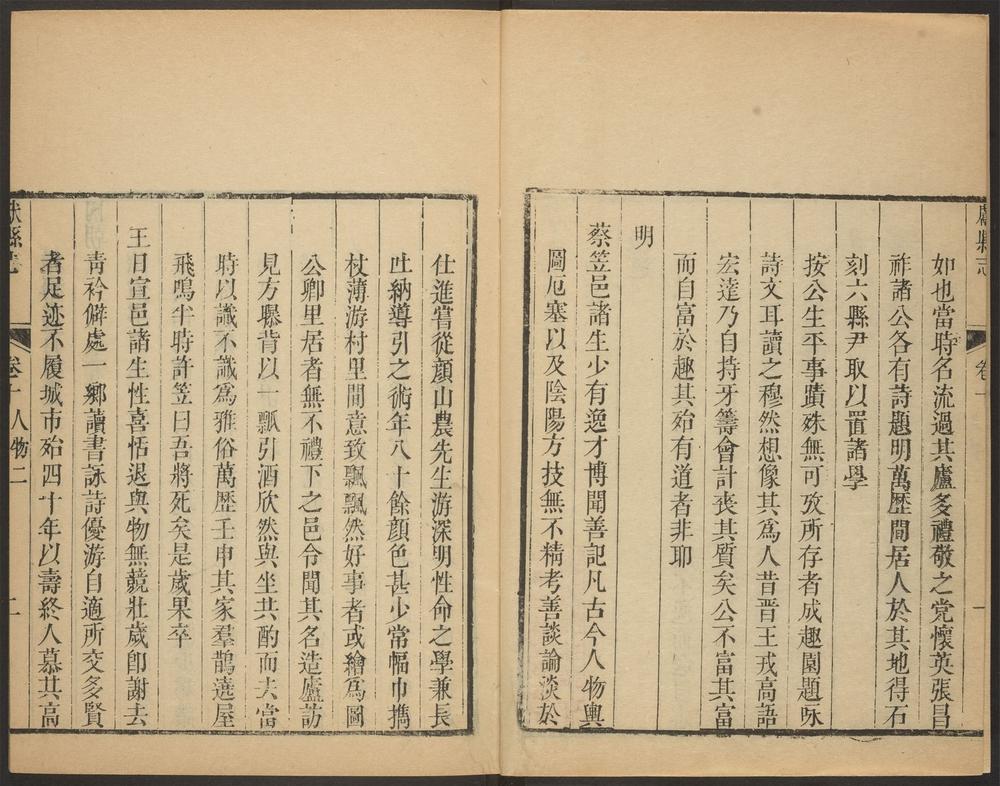 如也當時名流過其廬多禮敬之党懷英張昌
祚諸公各有詩題明萬歷間居人於其地得石
刻六縣尹取以置諸學
按公生平事蹟殊無可攷所存者成趣園題詠
詩文耳讀之穆然想像其爲人昔晉王戎高語
宏達乃自持牙籌會計喪其質矣公不富其富
而自富於趣其殆有道者非耶
明
蔡笠邑諸生少有逸才博聞善記凡古今人物輿
圖厄塞以及陰陽方技無不精考善談論淡於
仕進嘗從顔山農先生游深明性命之學兼長
吐納導引之術年八十餘顔色甚少常幅巾攜
杖薄游村里閒意致飄飄然好事者或繪爲圖
公卿里居者無不禮下之邑令聞其名造廬訪
見方曝背以一瓢引酒欣然與坐共酌而去當
時以識不識爲雅俗萬歷壬申其家羣鵲遶屋
飛鳴半時許笠曰吾將死矣是歲果卒
王日宣邑諸生性喜恬退與物無競壯歲卽謝去
青衿僻處一鄉讀書詠詩優游自適所交多賢
者足迹不履城市殆四十年以壽終人慕其高
獻縣志 卷十人物二 二